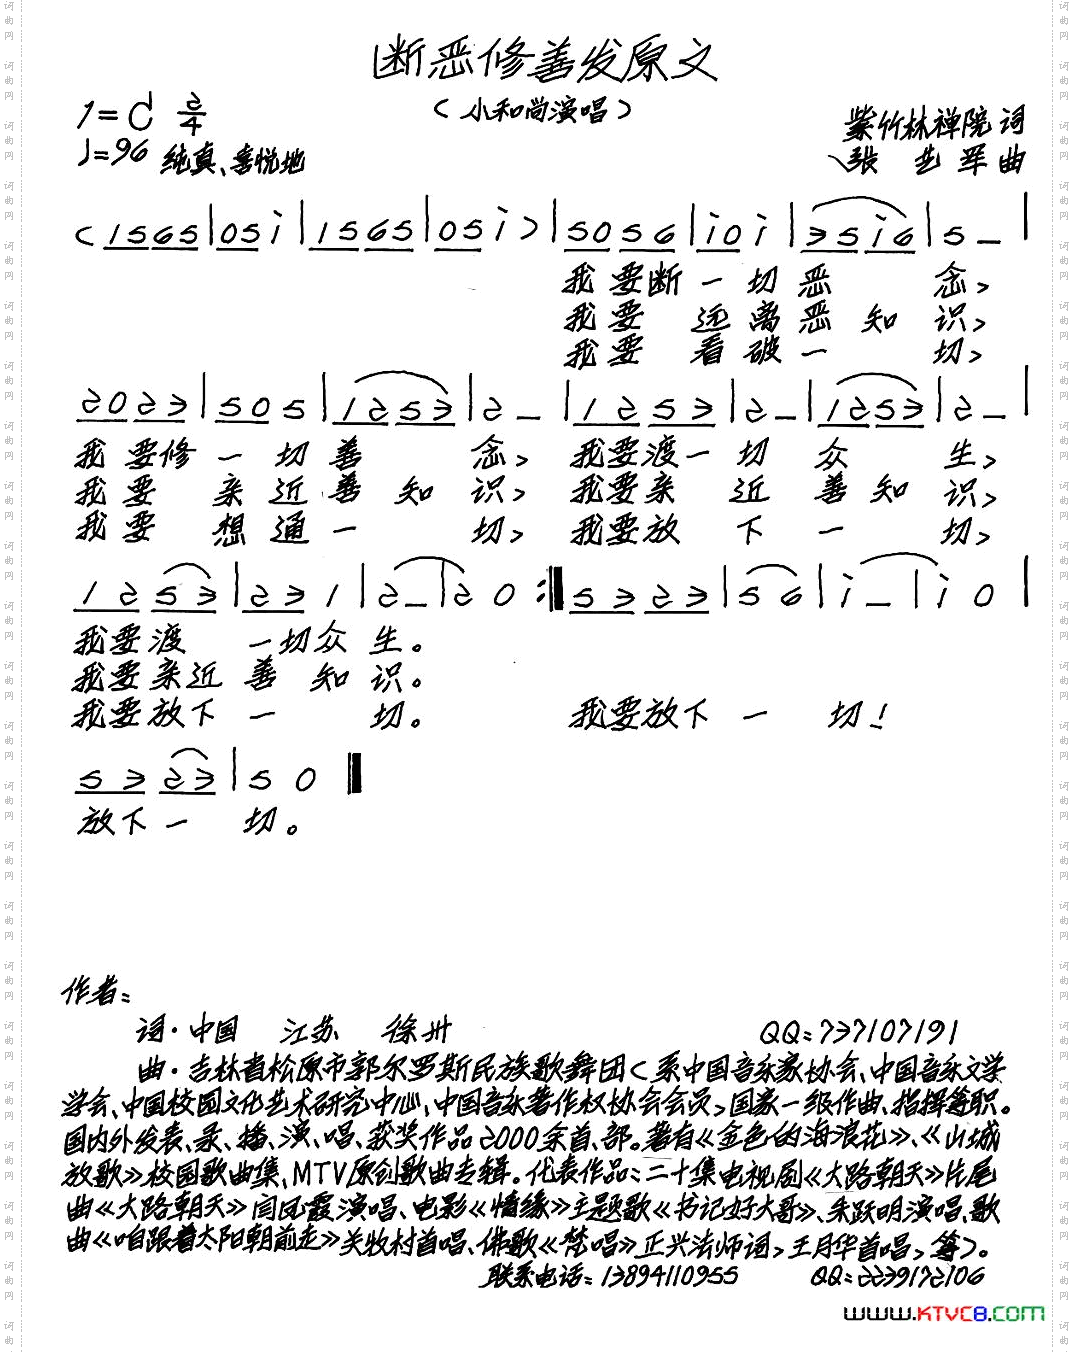 断恶修善发原文
(小和尚演唱)
1=C 2/4
♩=96 纯真、喜悦地
紫竹林禅院 词
张艺军 曲
(1565|05i|1565|05i)|5056|i0i|35i6|5-|
我要断一切恶念,
我要远离恶知识,
我要看破一切,
2023|505|1253|2-|1253|2-|1253|2-|
我要修一切善念, 我要渡一切众生,
我要亲近善知识, 我要亲近善知识,
我要想通一切, 我要放下一切,
1253|231|2-|20:‖5323|56|i-|i0|
我要渡一切众生。
我要亲近善知识。
我要放下一切。 我要放下一切!
5323|50‖
放下一切。
作者:
词·中国 江苏 徐州 QQ:737107191
曲·吉林省松原市郭尔罗斯民族歌舞团(系中国音乐家协会、中国音乐文学
学会、中国校园文化艺术研究中心、中国音乐著作权协会会员,国家一级作曲、指挥等职。
国内外发表、录、播、演、唱、获奖作品2000余首、部。著有《金色的海浪花》、《山城
放歌》校园歌曲集、MTV原创歌曲专辑。代表作品:二十集电视剧《大路朝天》片尾
曲《大路朝天》闫凤霞演唱、电影《情缘》主题歌《书记好大哥》、朱跃明演唱、歌
曲《咱跟着太阳朝前走》关牧村首唱、佛歌《梵唱》正兴法师词,王月华首唱,等)。
联系电话:13894110955 QQ:2239172106
www.KTVC8.com
词曲网